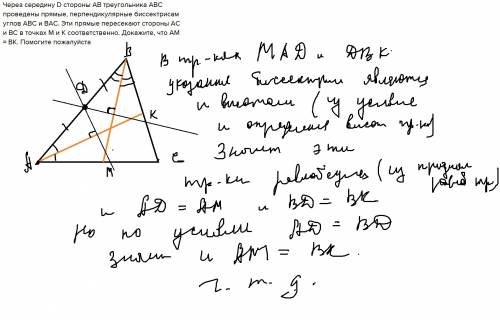 Через середину D стороны АВ треугольника ABC
проведены прямые, перпендикулярные биссектрисам
углов ABC и BAC. Эти прямые пересекают стороны АС
и ВС в точках М и К соответственно. Докажите, что АМ
= ВК. Помогите пожалуйста
B
D
K
A
M
C
В тр-ках MAD и DBK
указанные биссектрисы являются
и высотами (из условия
и определения высот тр-ка)
Значит эти
тр-ки равнобедр (из признака
равноб тр)
и AD = AM и BD = BK
Но по условию AD = BD
значит и AM = BK.
ч. т. д.